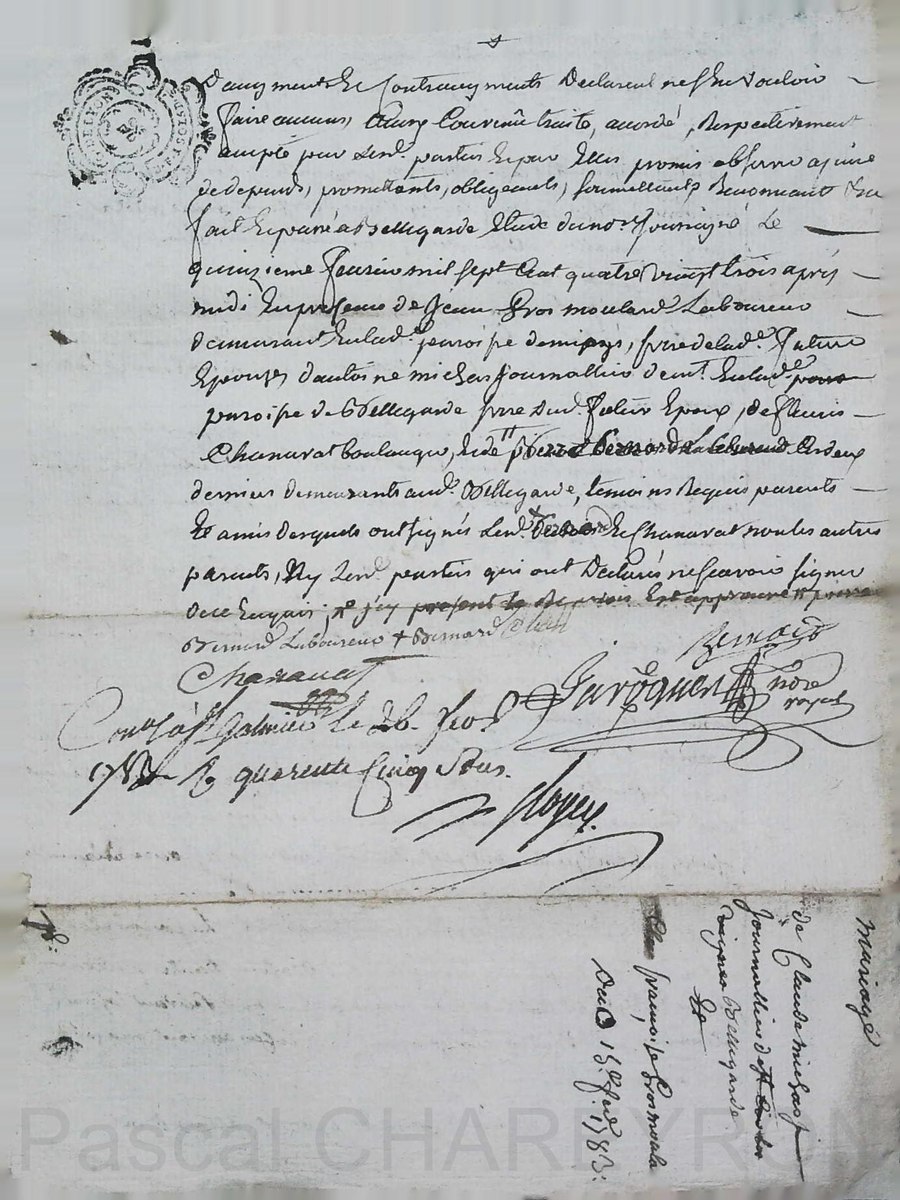 daugments et contraugments declarent ne s'en vouloir
faire aucuns, ainsy convenu traité, accordé, respectivement
accepté par lesd. parties et par elles promis observer a peine
de depends, promettants, obligeants, soumettants renonceant
fait et passé a Bellegarde etude du no.re soussigné le
quinzieme fevrier mil sept cent quatre vingt trois après
midi en presence de jean Grosmoulard Laboureur
demeurant en lad. paroisse de frere de lad. future
Epouze, d'antoine michas journallier dem.t en lad.
paroisse de Bellegarde frere dud. futur Epoux, de fleuris
Chanavat boulanger, et de les deux
derniers demeurants aud. Bellegarde, temoins requis parents
et amis desquels ont signés lesd. et Chanavat non les autres
parents, ny lesd. parties qui ont declarés ne scavoir signer
de ce enquis; est approuvé pierre
Bernard Laboureur + Bernard
Bernard
Chanavat
no.re royal
Con.lé à S.t Galmier le 26. fev.
1783 R quarente Cinq Sous.
mariage
de Claude michas
journallier
Bellegarde
Et
francoise Grosmoula
Du 15.e fev. 1783.
Pascal CHAREYRON